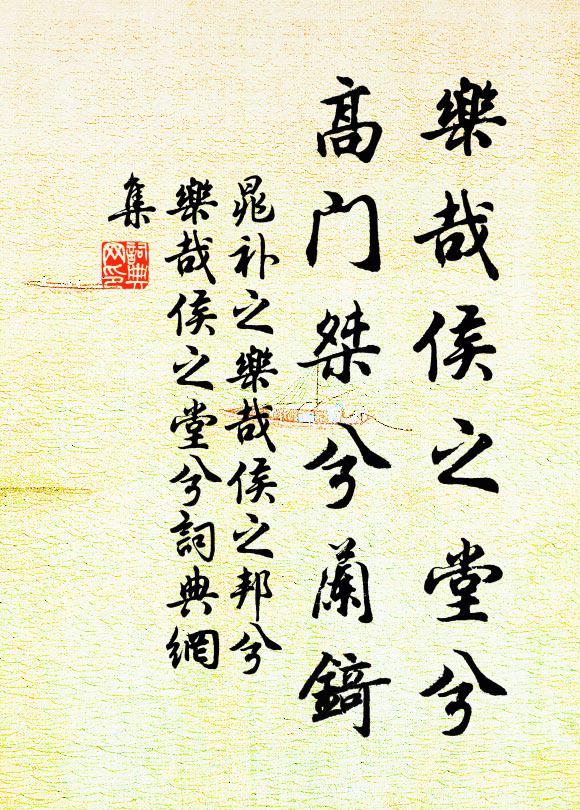 樂哉侯之堂兮
高門桀兮蘭錡
晁补之樂哉侯之邦兮
樂哉侯之堂兮詞典網
集
詞典
网印